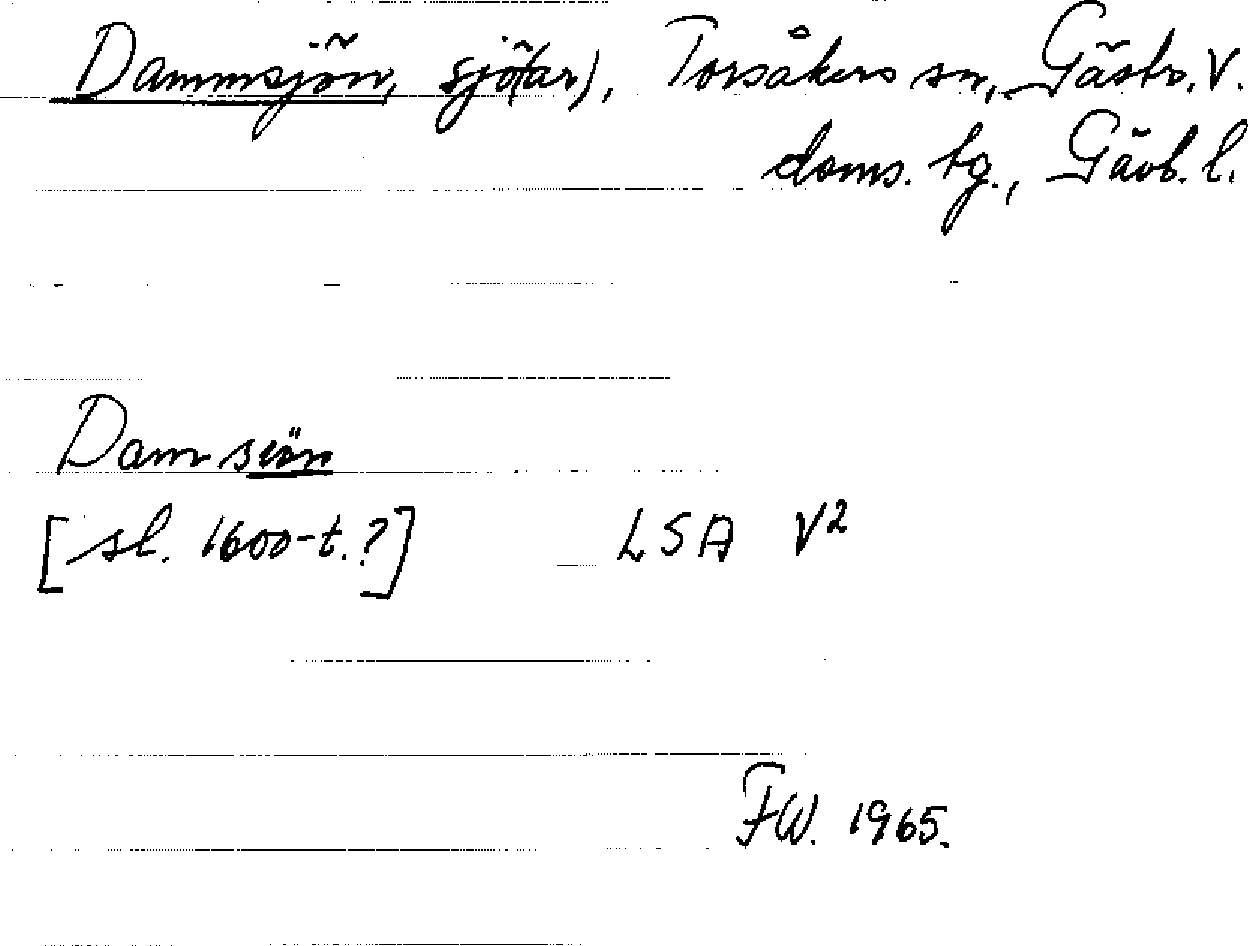 Dammsjön, sjö(ar), Torsåkers sn, Gästr. V.
doms. tg., Gävl. l.
Dam siön
[sl. 1600-t.?] LSA V²
FW. 1965.